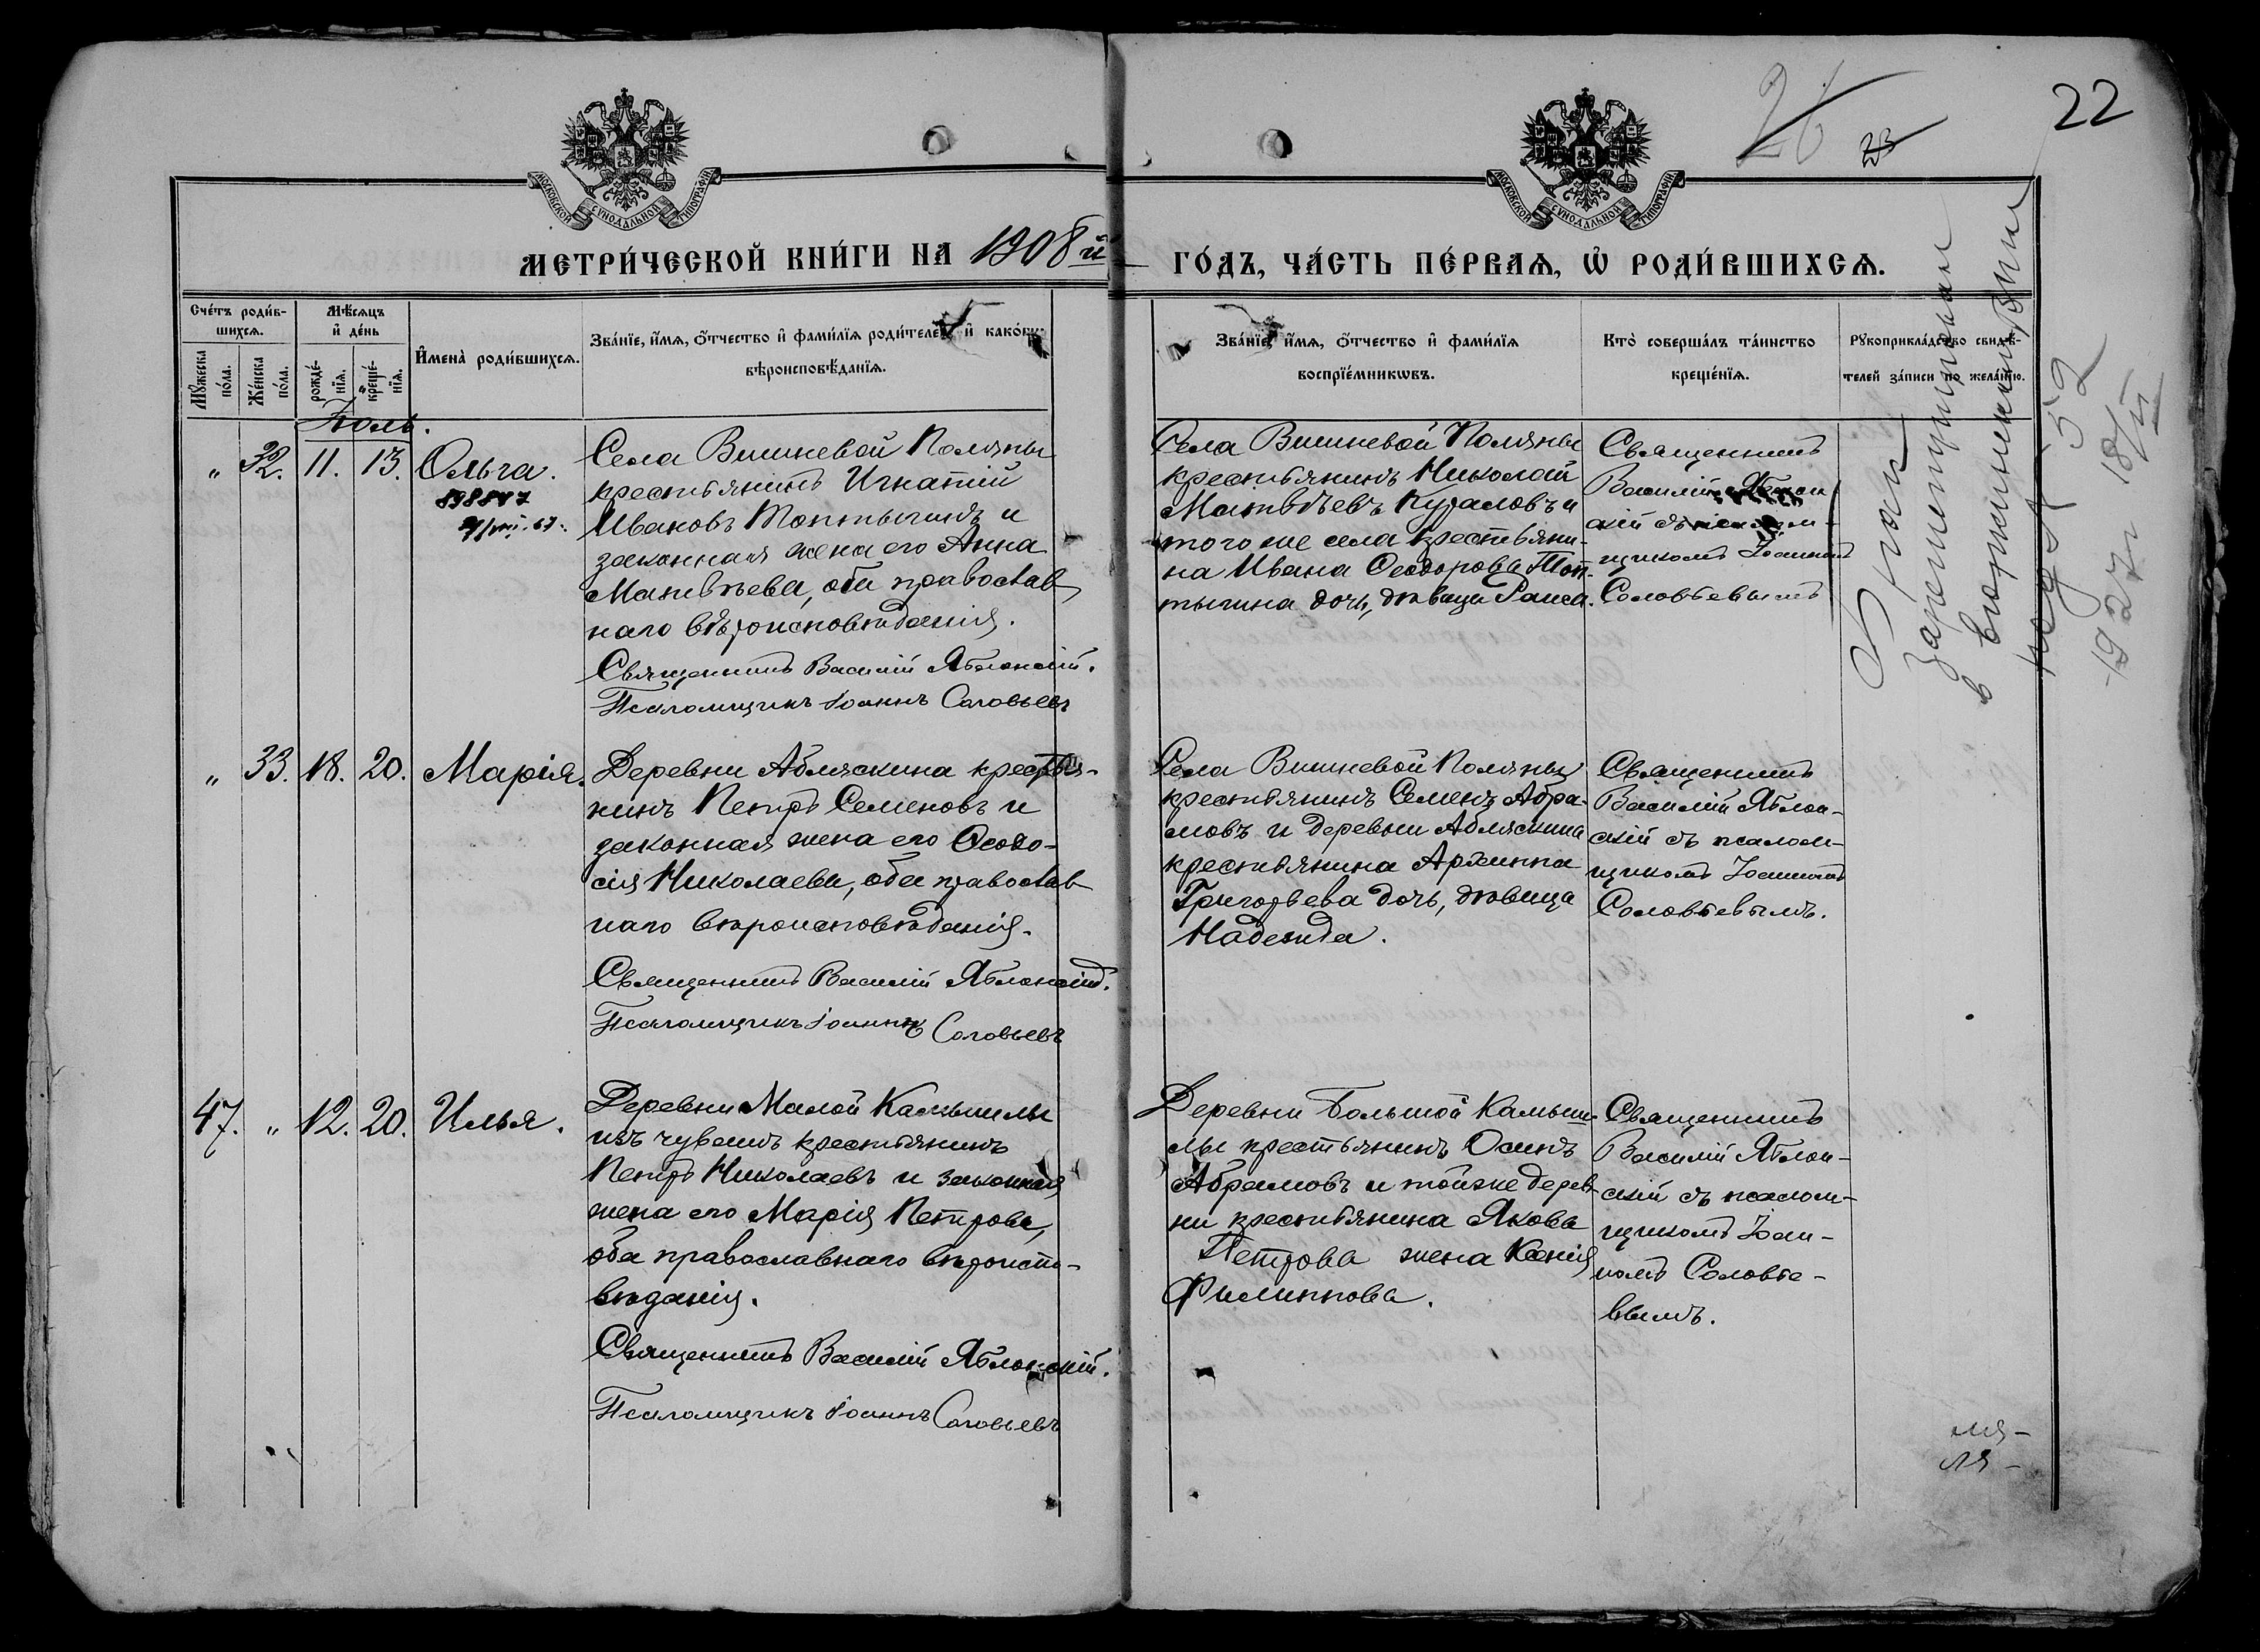 22
26
23
МОСКОВСКОЙ СѴНОДАЛЬНОЙ ТИПОГРАФІИ
МОСКОВСКОЙ СѴНОДАЛЬНОЙ ТИПОГРАФІИ
МЕТРИ́ЧЕСКОЙ КНИ́ГИ НА 1908й ГО́ДЪ, ЧА́СТЬ ПЕ́РВАѦ, Ѡ҆ РОДИ́ВШИХСѦ.
Сче́тъ роди́в-
шихсѧ.
Мꙋ́жеска по́ла.
Же́нска по́ла.
Мѣ́сѧцъ
и҆ де́нь
рожде́-
нїѧ.
креще́-
нїѧ.
И҆мена̀ роди́вшихсѧ.
Зва́нїе, и҆́мѧ, ѻ҆́тчество и҆ фами́лїѧ роди́телей, и҆ како́гѡ
вѣроисповѣ́данїѧ.
Зва́нїе, и҆́мѧ, ѻ҆́тчество и҆ фами́лїѧ
воспрїе́мникѡвъ.
Кто̀ соверша́лъ та́инство
креще́нїѧ.
Рꙋкоприкла́дство свидѣ́-
телей за́писи по жела́нїю.
Іюль.
„ 32. 11. 13. Ольга.
898847
Села Вишневой Поляны
крестьянинъ Игнатій
Ивановъ Топтыгинъ и
законная жена его Анна
Матвѣева, оба православ
наго вѣроисповѣданія.
Священникъ Василій Яблонскій.
Псаломщикъ Іоаннъ Соловьевъ
Села Вишневой Поляны
крестьянинъ Николай
Матвѣевъ Кураловъ и
того же села крестьяни-
на Ивана Ѳеодорова Топ-
тыгина дочь, дѣвица Раиса.
Священникъ
Василій Яблон
скій съ псалом-
щикомъ Іоанномъ
Соловьевымъ
Брак
зарегистрирован
в
1927г 18/II
„ 33. 18. 20. Марія.
Деревни Абляскина крестья-
нинъ Петръ Семеновъ и
законная жена его Ѳеодо-
сія Николаева, оба православ
наго вѣроисповѣданія.
Священникъ Василій Яблонскій.
Псаломщикъ Іоаннъ Соловьевъ
Села Вишневой Поляны
крестьянинъ Семенъ Абра-
мовъ и деревни Абляскина
крестьянина Архиппа
Григорьева дочь, дѣвица
Надежда.
Священникъ
Василій Яблон-
скій съ псалом-
щикомъ Іоанномъ
Соловьевымъ.
47. „ 12. 20. Илья.
Деревни Малой Камышлы
изъ чувашъ крестьянинъ
Петръ Николаевъ и законная
жена его Марія Петрова,
оба православнаго вѣроиспо-
вѣданія.
Священникъ Василій Яблонскій.
Псаломщикъ Іоаннъ Соловьевъ
Деревни Большой Камыш-
лы крестьянинъ Осипъ
Абрамовъ и тойже дерев-
ни крестьянина Якова
Петрова жена Ксенія
Филиппова.
Священникъ
Василій Яблон-
скій съ псалом-
щикомъ Іоан-
номъ Соловье-
вымъ.